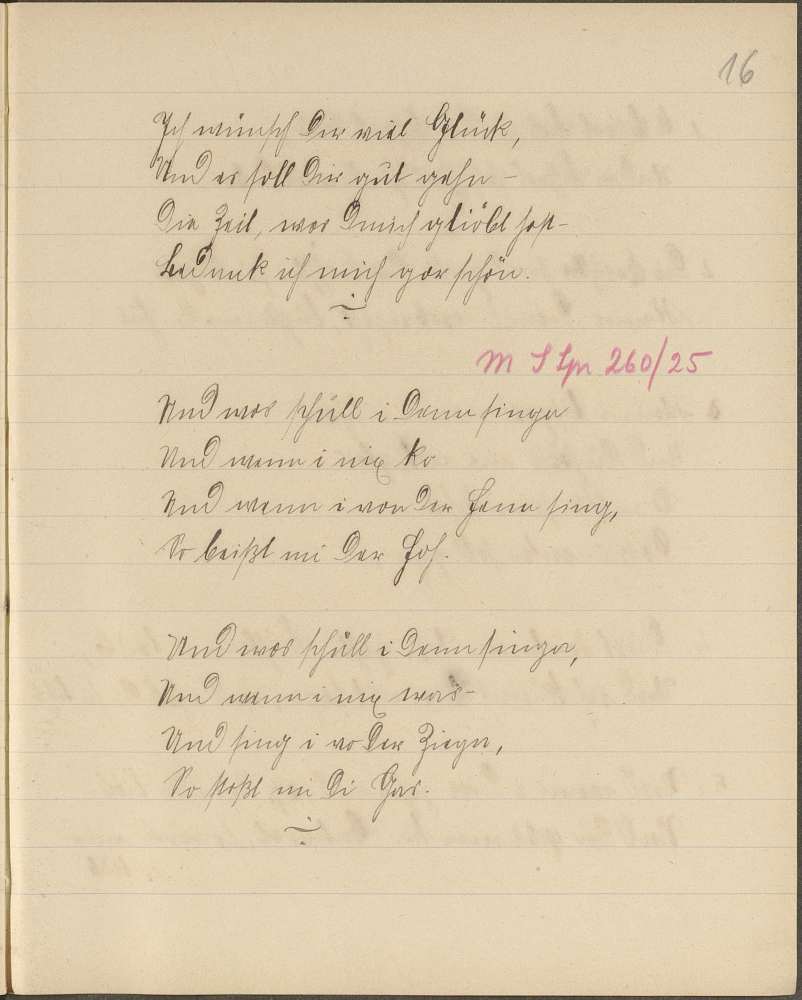 16
Ich wünsch Dir viel Glück,
Und es soll Dir gut gehn –
Die Zeit, wos Dmich gliöbt host –
Bedank ich mich gor schön.
M S Spr 260/25
Und wos schüll i denn singa
Und wenn i nix ko
Und wenn i von der Henn sing,
So beißt mi der Hoh.
Und wos schüll i denn singa,
Und wenn i nix was –
Und sing i vo der Ziegn,
So stoßt mi di Gas.